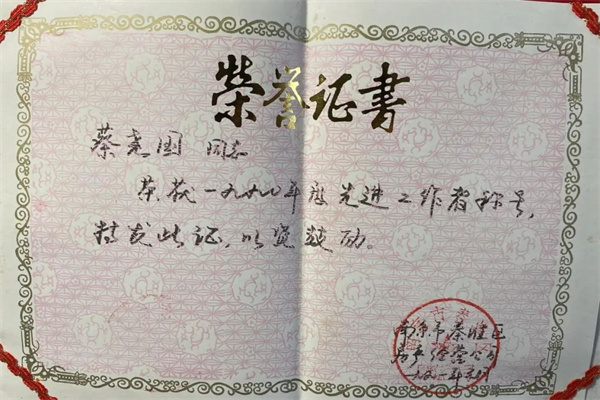 榮誉证書
蔡尧国 同志
荣获一九九〇年度先进工作者称号，
特发此证，以资鼓励。
南京市秦淮区
房产经营公司
一九九一年元月